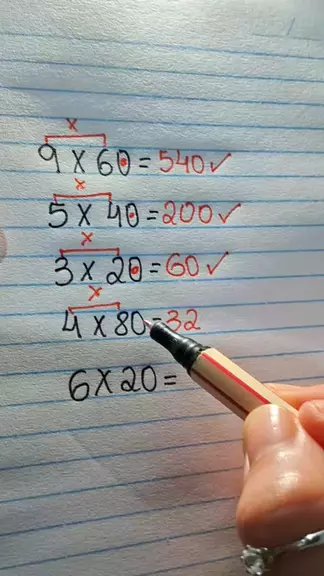 x
9 x 60 = 540 ✓
x
5 x 40 = 200 ✓
x
3 x 20 = 60 ✓
x
4 x 80 = 32
6 x 20 =